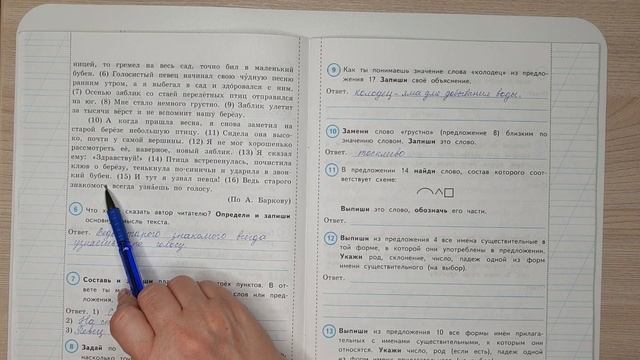 ницей, то гремел на весь сад, точно бил в маленький
бубен. (6) Голосистый певец начинал свою чудную песню
ранним утром, а я выбегал в сад и здоровался с ним.
(7) Осенью зяблик со стаей перелётных птиц отправился
на юг. (8) Мне стало немного грустно. (9) Зяблик улетит
за тысячи вёрст и не вспомнит нашу берёзу.
(10) А когда пришла весна, я снова заметил на
старой берёзе небольшую птицу. (11) Сидела она высо-
ко, почти у самой вершины. (12) Я не мог хорошенько
рассмотреть её, наверное, новый зяблик. (13) Я сказал
ему: «Здравствуй!» (14) Птица встрепенулась, почистила
клюв о берёзу, тенькнула по-синичьи и ударила в звон-
кий бубен. (15) И тут я узнал певца! (16) Ведь старого
знакомого всегда узнаёшь по голосу.
(По А. Баркову)
6 Что хочет сказать автор читателю? Определи и запиши
основную мысль текста.
Ответ. Ведь старого знакомого всегда
узнаёшь по голосу.
7 Составь и запиши план трёх пунктов. В от-
вете ты слов или пред-
ложения.
Ответ. 1)
2) На
3) Певец
8 Задай
насколько точно
9 Как ты понимаешь значение слова «колодец» из предло-
жения 1? Запиши своё объяснение.
Ответ. колодец – яма для добывания воды.
10 Замени слово «грустно» (предложение 8) близким по
значению словом. Запиши это слово.
Ответ. тоскливо
11 В предложении 14 найди слово, состав которого соот-
ветствует схеме:
Выпиши это слово, обозначь его части.
Ответ.
12 Выпиши из предложения 4 все имена существительные в
той форме, в которой они употреблены в предложении.
Укажи род, склонение, число, падеж одной из форм
имени существительного (на выбор).
Ответ.
13 Выпиши из предложения 10 все формы имён прилага-
тельных с именами существительными, к которым они
относятся. Укажи число, род (если есть), падеж одной